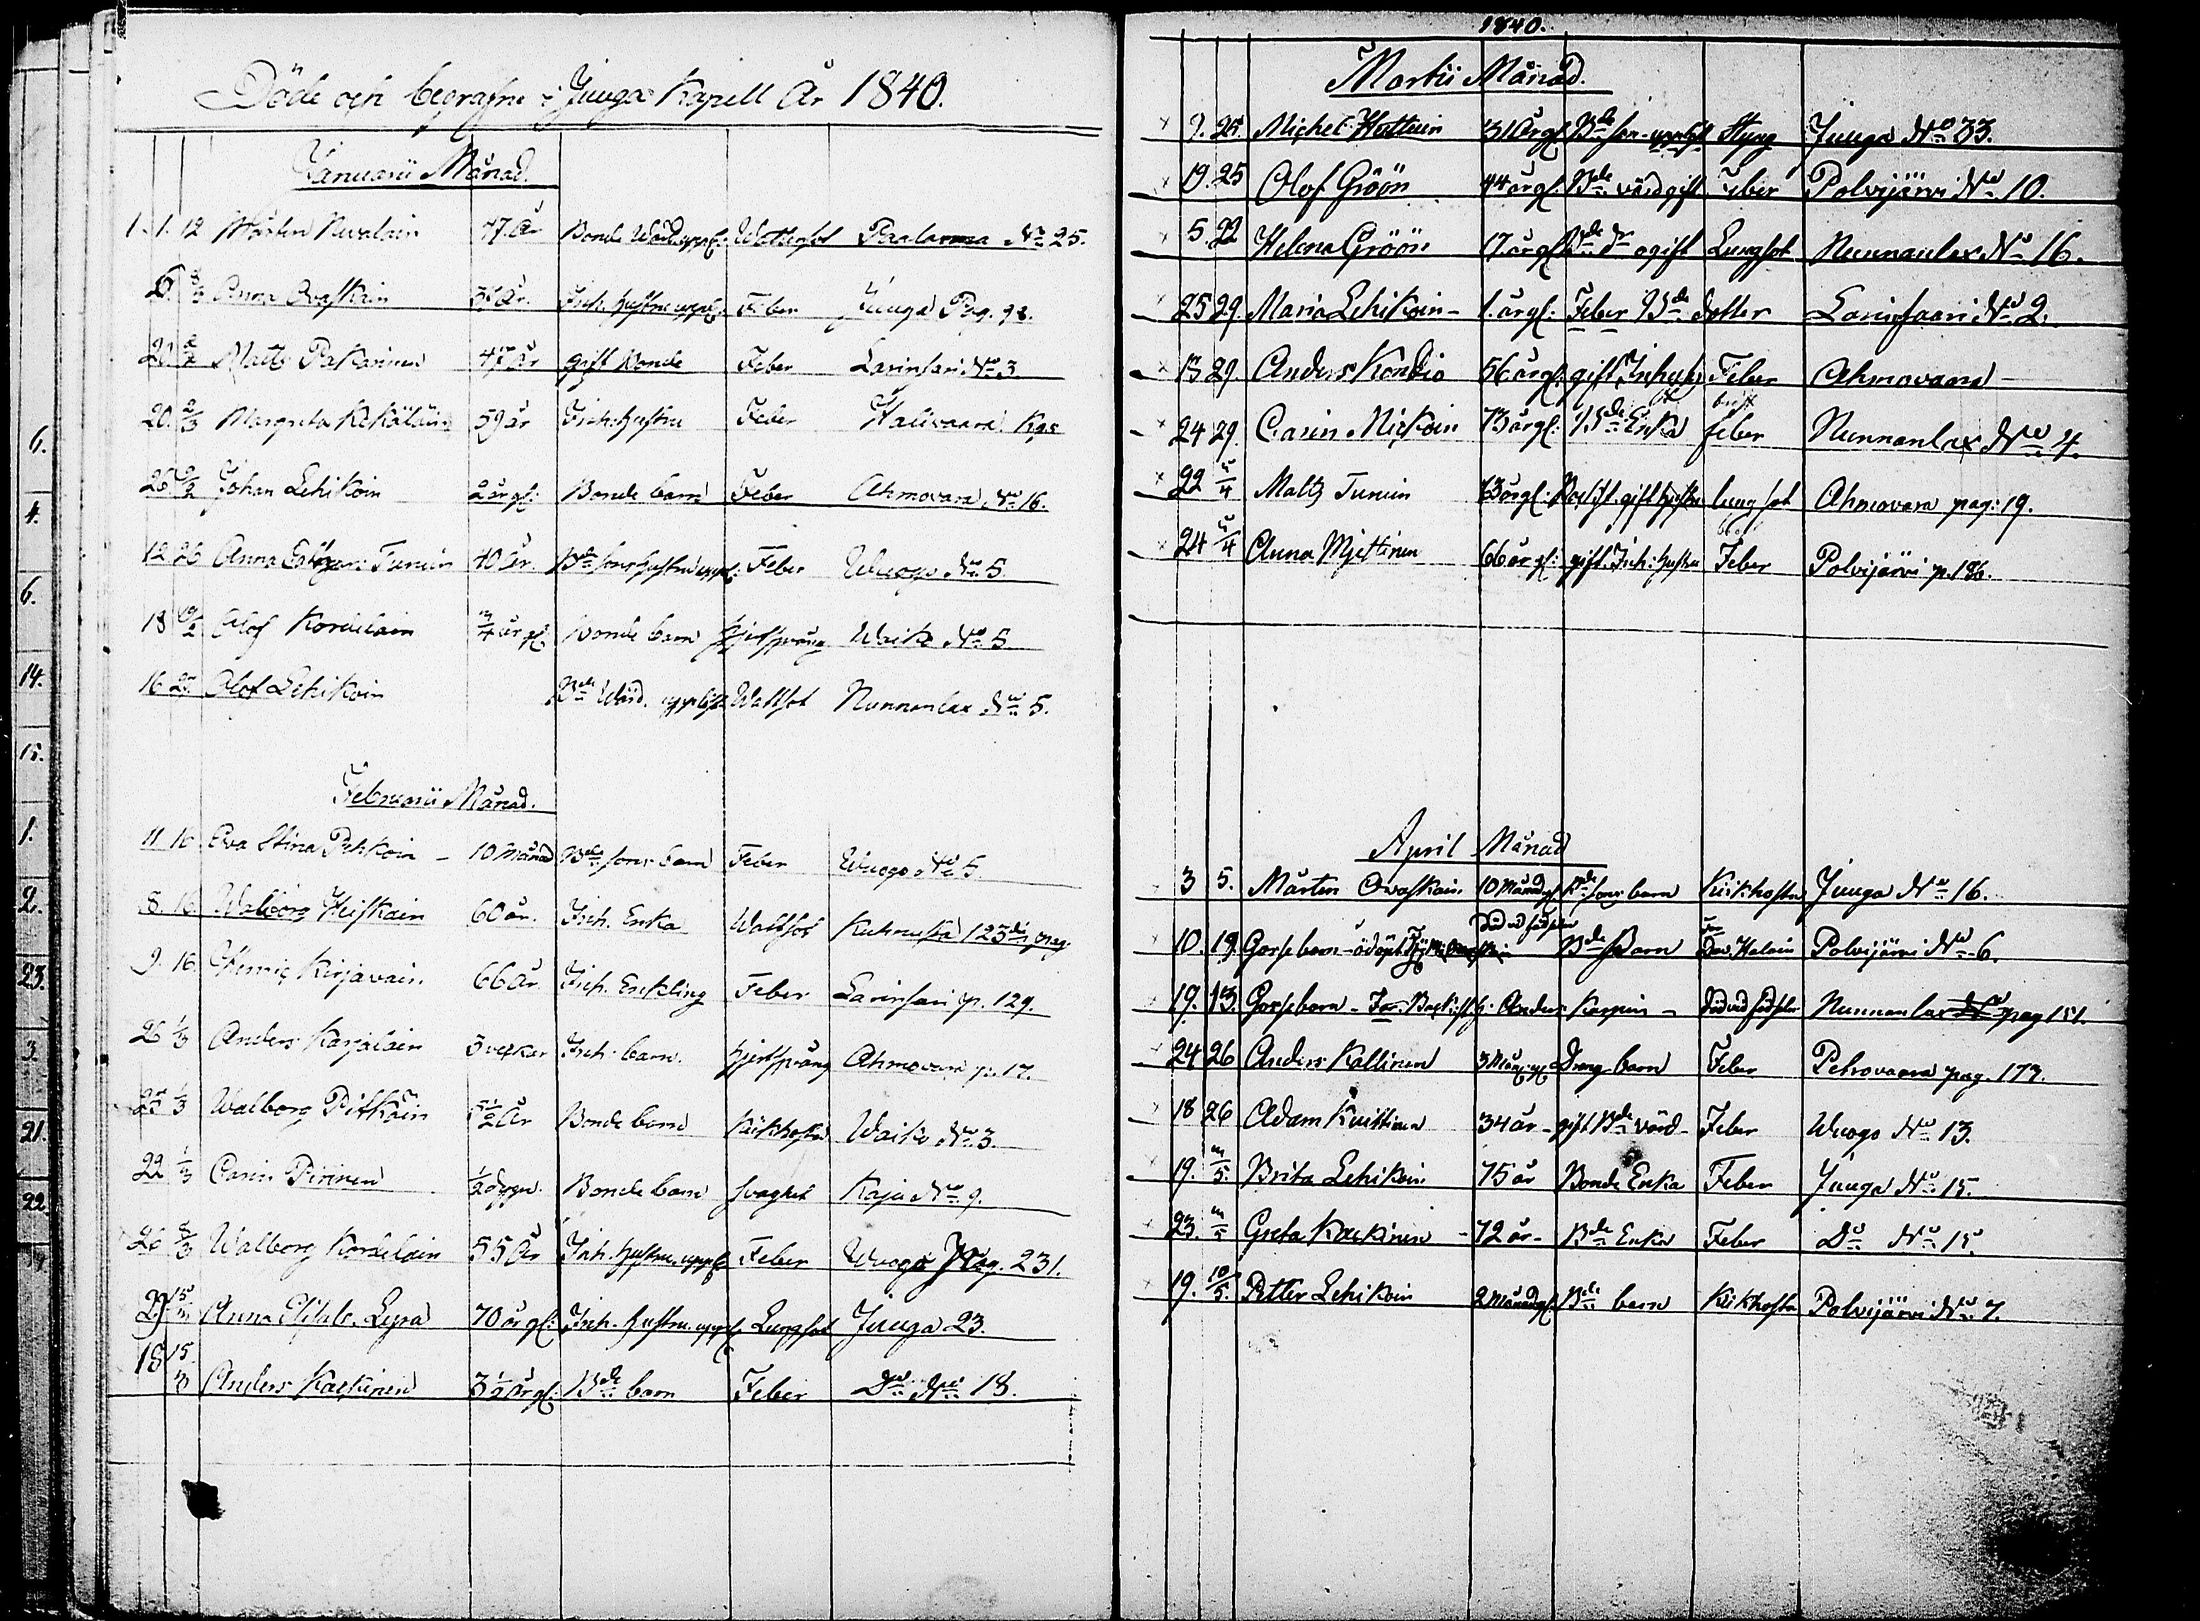 Döde och begrafne i Juuga Kapell År 1840.
Januarii Månad.
1. 1. 12 Mårten Nevalain 77 År Bonde Wärd Wattusot Paalasmaa No 25.
6. 8/3 Anna Ovaskain År. Inh. hustru Feber Juuga Pag. 98.
20. 2/2 Matts Pakarinen 47 År gift Bonde Feber Larinsari No 3.
20. 2/3 Margreta Kekäläin 59 år Inh: hustru Feber Halivaara
26 9/2 Johan Lehikoin 2 år gl: Bonde barn Feber Ahmovara No 16.
12 26 Anna Turuin 40 År. Bde sons hustru Feber Wuogo No 5.
18 19/2 Olof Kordelain 3/4 år gl: Bonde barn hjertsprång Waiko No 5.
16 25 Olof Lehikoin Bde Wärd. Wattsot Nunnanlax No 5.
Februarii Månad.
11 16 Eva Stina Pehkoin - 10 Månad Bde sons barn Feber Wuogo No 5.
8. 16. Walborg Heiskain 60 år. Inh. Enka Wattsot 123 pag.
9. 16. Henric Kirjavain. 66 År Inh. Enkling Feber Larinsari p. 129.
26 1/3 Anders Karjalain 3 veckor Inh: barn. hjertsprång Ahmovara p. 17.
25 1/3 Walborg Pitkäin 5 1/2 År Bonde barn Kikhosta Waiko No 3.
22 1/3 Carin Pirinen 1/2 dygn. Bonde barn svaghet Kaju No 9.
26 8/3 Walborg Kordelain 55 År Inh. hustru. Feber Wuogo Pag. 231.
29 15/3 Anna Lyra 70 år gl: Inh. hustru. Lungsot Juuga 23.
18 15/3 Anders Kackinen 3 1/2 År gl: Bde barn Feber Do No 18.
1840.
Martii Månad.
9. 25. Michel Hottuin 31 År gl. Bde son Styng Juuga No 33.
19. 25 Olof Gröön 44 år gl. Bde värd gift Feber Polvijärvi No 10.
5. 22 Helena Gröön 17. år gl. Bde dr ogift Lungsot Nunnanlax No 16.
25 29. Maria Lehikoin - 1. år gl: Feber Bde dotter Larinsaari No 2.
13 29. Anders Kondio 56 år gl: gift Inhys Feber Ahmovaara
24 29. Carin Mickoin 73 år gl: Bde Enka bröst feber Nunnanlax No 4.
22 5/4 Matts Turuin 63 år gl: lungsot Ahmovara pag: 19.
24 5/4 Anna Mjettinen 66 år gl: gift. Inh: hustru Feber Polvijärvi p. 186.
April Månad
3 5. Mårten Ovaskain 10 Månad gl. Bde sons barn Kikhosta Juuga No 16.
10. 19. Gossebarn - odöpt Död vid födseln Bde Barn Far Polvijärvi No 6.
19. 13. Gossebarn - Far: Anders Karpin - död vid födseln Nunnanlax pag 151.
24 26 Anders Kallinen 3 Mån: gl. Dreng barn Feber Petrovaara pag. 173.
18 26 Adam Kuittinen 34 år - gift Bde värd - Feber Wuogo No 13.
19. 5. Brita Lehikoin 75 år Bonde Enka Feber Juuga No 15.
23. 5 Greta Kackinen - 72 år - Bde Enka Feber Do No 15.
19. 10/5. Petter Lehikoin 2 Månad gl. Bde barn Kikhosta Polvijärvi No 7.
6.
4.
6.
14.
15.
1.
2.
23.
3.
21.
22.